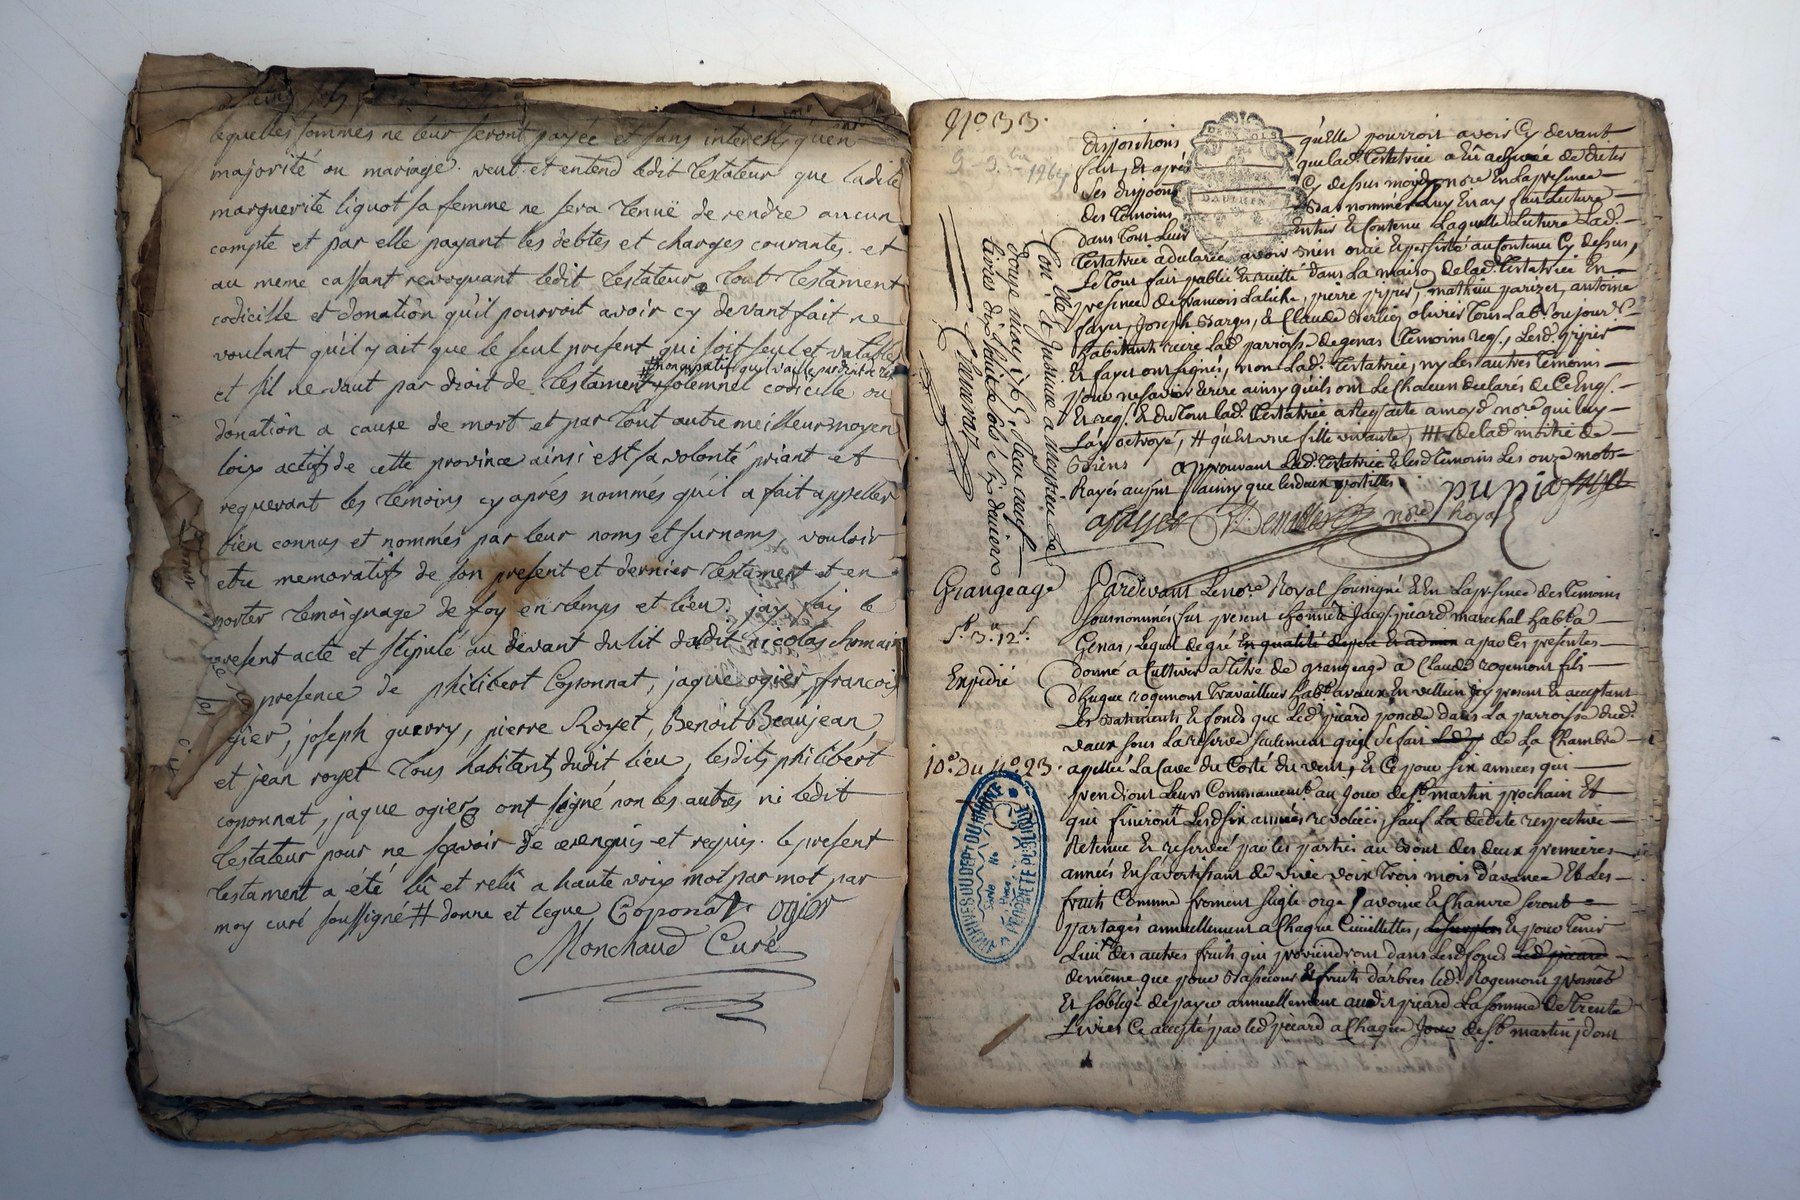 lequelles sommes ne leur seront payée et sans interest qu'en
majorité ou mariage. veut et entend ledit testateur que ladite
marguerite liguot sa femme ne sera tenuë de rendre aucun
compte et par elle payant les debtes et charges courantes. et
au meme cassant revoquant ledit testateur tout testament
codicille et donation qu'il pourroit avoir cy devant fait ne
voulant qu'il y ait que le seul present qui soit seul et valable
et s'il ne vaut par droit de testament solemnel codicille ou
donation a cause de mort et par tout autre meilleur moyen
loix actifs de cette province ainsi est sa volonté priant et
requerant les temoins cy aprés nommés qu'il a fait appeller
bien connus et nommés par leur noms et surnoms, vouloir
etre memoratifs de son present et dernier testament et en
porter temoignage de foy en temps et lieu. fait le
present acte et stipulé au devant du lit dudit nicolas
presence de philibert Coponnat, jaque ogier, françois
ogier, joseph guerry, pierre Royet, Benoît Beaujean,
et jean royet tous habitants dudit lieu, lesdits philibert
coponnat, jaque ogier ont signé non les autres ni ledit
testateur pour ne sçavoir de ce enquis et requis. le present
testament a été lû et relû a haute voix mot par mot par
moy curé soussigné # donne et legue Coponat ogier
Monchaud Curé
N° 33.
Dispositions qu'elle pourroit avoir cy devant
fait, Et aprés que lad. testatrice a de dicter
ses dispoons cy dessus moyd. nore en la presence
des temoins
dans tout leur entier et contenu laquelle lecture lad.
testatrice a declaré avoir bien ouie et persisté au contenu cy dessus,
Le tout fait publié et recitté dans la maison de lad. testatrice En
presence de francois Laliche, pierre pipier, mathieu parizet, antoine
fayet, Joseph Barges, & Claude olivier tous Lab. ou jour.
habitants lad. parroisse de genas temoins req., Lesd. pipier
Et fayet ont signés, non lad. testatrice, ny les autres temoins
pour ne savoir ecrire ainsy qu'ils ont le chacun declarés de ce Enq.
Et req. & du tout lad. testatrice a req. acte a moyd. nore qui luy
L'ay octroyé, # qu'est une fille vivante, ## de lad. moitié de
Biens approuvant Lad. testatrice & lesd. temoins les onze mots
Rayés au sur ainsy que les deux postilles
afayet nore Royal
Conté. de la Justice a meyzieu le
douze may 1765, Reçu neuf
livres dix huit sols six deniers
Grangeage
Expédié
10e Du N° 23.
Pardevant Le nore Royal soussigné & En la presence des temoins
sousnommés fut present honnête Jacq. picard marechal habt. a
Genas, Lequel de gré en qualité de pere et adm. a par ces presentes
donné a Cultiver a titre de grangeage a Claude rogemont fils
d'hugue rogemont travailleur habt. a vaux En vellein icy present et acceptant
Les Batiments & fonds que Led. picard possede dans la parroisse dud.
vaux sous la reserve seulement qu'il se fait de la chambre
apellée La Cave du Costé du vent, & Ce pour six années qui
prendront Leurs Commancemt. au jour de St. martin prochain Et
qui finiront Lesd. six années revolües, sauf la dedite respective
Retenue & reservée par les parties au Bout des deux premieres
années En s'avertissant de vive voix trois mois d'avance Et Les
fruits Comme froment seigle orge avoine & Chanvre seront
partagés annuellement a Chaque Cueillettes, Et pour tenir
Lieu des autres fruits qui proviendront dans Lesd. fonds Led. picard
demême que pour Bassecour & fruits d'arbres led. Rogemont promet
Et s'oblige de payer annuellement audit picard La somme de trente
Livres Ce accepté par led. picard a Chaque Jour de St. martin, dont
ARCHIVES DU DEPT DU RHÔNE
PROPRIETE PUBLIQUE